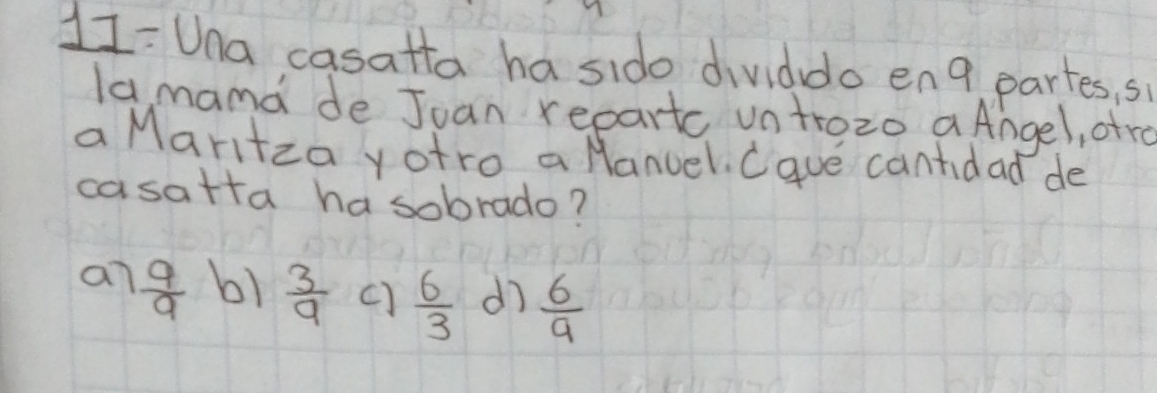 11= Una casatta ha sido dividido en 9 partes, si
la mamá de Juan reparte un trozo a Ángel, otro
a Maritza y otro a Manuel. ¿qué cantidad de
casatta ha sobrado?
a) 9/9 b) 3/9 c) 6/3 d) 6/9